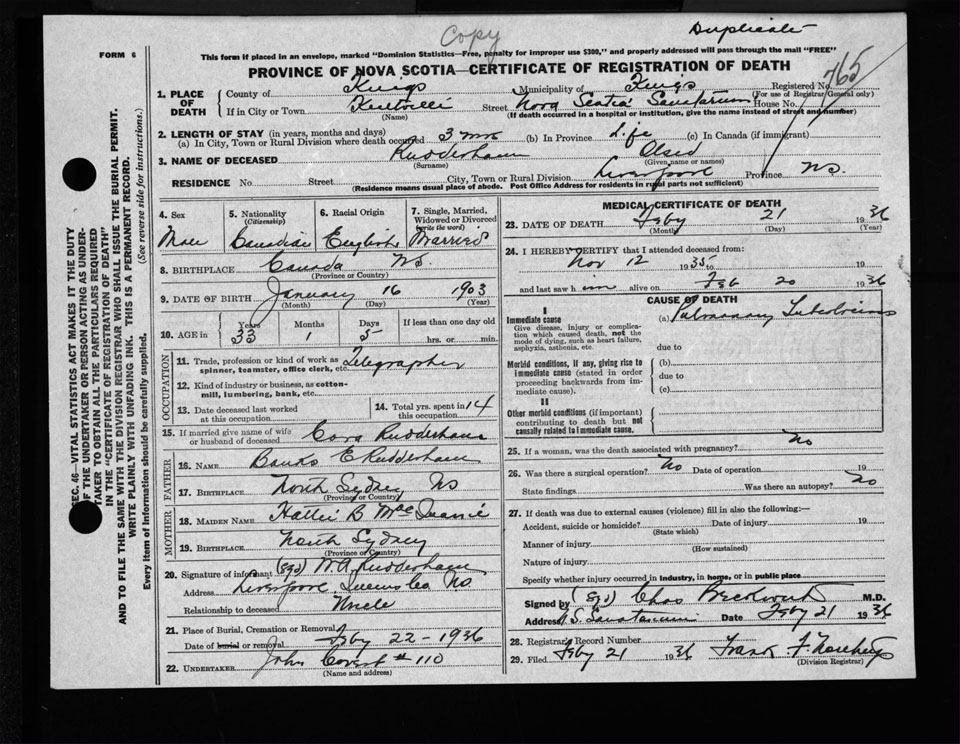 Copy
Duplicate
FORM 6
This form if placed in an envelope, marked "Dominion Statistics—Free, penalty for improper use $300," and properly addressed will pass through the mail "FREE"
PROVINCE OF NOVA SCOTIA—CERTIFICATE OF REGISTRATION OF DEATH
765
1. PLACE OF DEATH
County of Kings Municipality of Kings Registered No.
(For use of Registrar General only)
If in City or Town Kentville Street Nova Scotia Sanitarium House No.
(Name) (If death occurred in a hospital or institution, give the name instead of street and number)
2. LENGTH OF STAY (in years, months and days)
(a) In City, Town or Rural Division where death occurred 3 mos (b) In Province Life (c) In Canada (if immigrant)
3. NAME OF DECEASED Rudderham
(Surname) (Given name or names)
RESIDENCE No Street City, Town or Rural Division Liverpool Province NS.
(Residence means usual place of abode. Post Office Address for residents in rural parts not sufficient)
4. Sex Male
5. Nationality (Citizenship) Canadian
6. Racial Origin English
7. Single, Married, Widowed or Divorced (write the word) Married
8. BIRTHPLACE Canada NS.
(Province or Country)
9. DATE OF BIRTH January 16 1903
(Month) (Day) (Year)
10. AGE in Years 33 Months 1 Days 5 If less than one day old hrs. or min.
OCCUPATION
11. Trade, profession or kind of work as spinner, teamster, office clerk, etc. Telegrapher
12. Kind of industry or business, as cotton-mill, lumbering, bank, etc.
13. Date deceased last worked at this occupation
14. Total yrs. spent in this occupation 14
15. If married give name of wife or husband of deceased Cora Rudderham
FATHER
16. NAME Banks E Rudderham
17. BIRTHPLACE North Sydney NS
(Province or Country)
MOTHER
18. MAIDEN NAME Hattie B
19. BIRTHPLACE North Sydney
(Province or Country)
20. Signature of informant (sgd) W.A. Rudderham
Address Liverpool, Queens Co NS.
Relationship to deceased Uncle
21. Place of Burial, Cremation or Removal
Date of burial or removal Feby 22 - 1936
22. UNDERTAKER John #110
(Name and address)
MEDICAL CERTIFICATE OF DEATH
23. DATE OF DEATH Feby 21 1936
(Month) (Day) (Year)
24. I HEREBY CERTIFY that I attended deceased from:
Nov 12 1935 to 19
and last saw him alive on Feb 20 1936
CAUSE OF DEATH
I
Immediate cause (a) Pulmonary Tuberculosis
Give disease, injury or complication which caused death, not the mode of dying, such as heart failure, asphyxia, asthenia, etc.
due to
Morbid conditions, if any, giving rise to immediate cause (stated in order proceeding backwards from immediate cause).
(b)
due to
(c)
II
Other morbid conditions (if important) contributing to death but not causally related to immediate cause.
25. If a woman, was the death associated with pregnancy? No
26. Was there a surgical operation? No Date of operation 19
State findings Was there an autopsy? No
27. If death was due to external causes (violence) fill in also the following:—
Accident, suicide or homicide? Date of injury 19
(State which)
Manner of injury
(How sustained)
Nature of injury
Specify whether injury occurred in industry, in home, or in public place
Signed by (sgd) Chas Beckwith M.D.
Address N.S. Sanatarium Date Feby 21 1936
28. Registrars Record Number
29. Filed Feby 21 1936 Frank F
(Division Registrar)
SEC. 46—VITAL STATISTICS ACT MAKES IT THE DUTY
OF THE UNDERTAKER OR PERSON ACTING AS UNDER-
TAKER TO OBTAIN ALL THE PARTICULARS REQUIRED
IN THE "CERTIFICATE OF REGISTRATION OF DEATH"
AND TO FILE THE SAME WITH THE DIVISION REGISTRAR WHO SHALL ISSUE THE BURIAL PERMIT.
WRITE PLAINLY WITH UNFADING INK. THIS IS A PERMANENT RECORD.
Every item of Information should be carefully supplied. (See reverse side for instructions.)